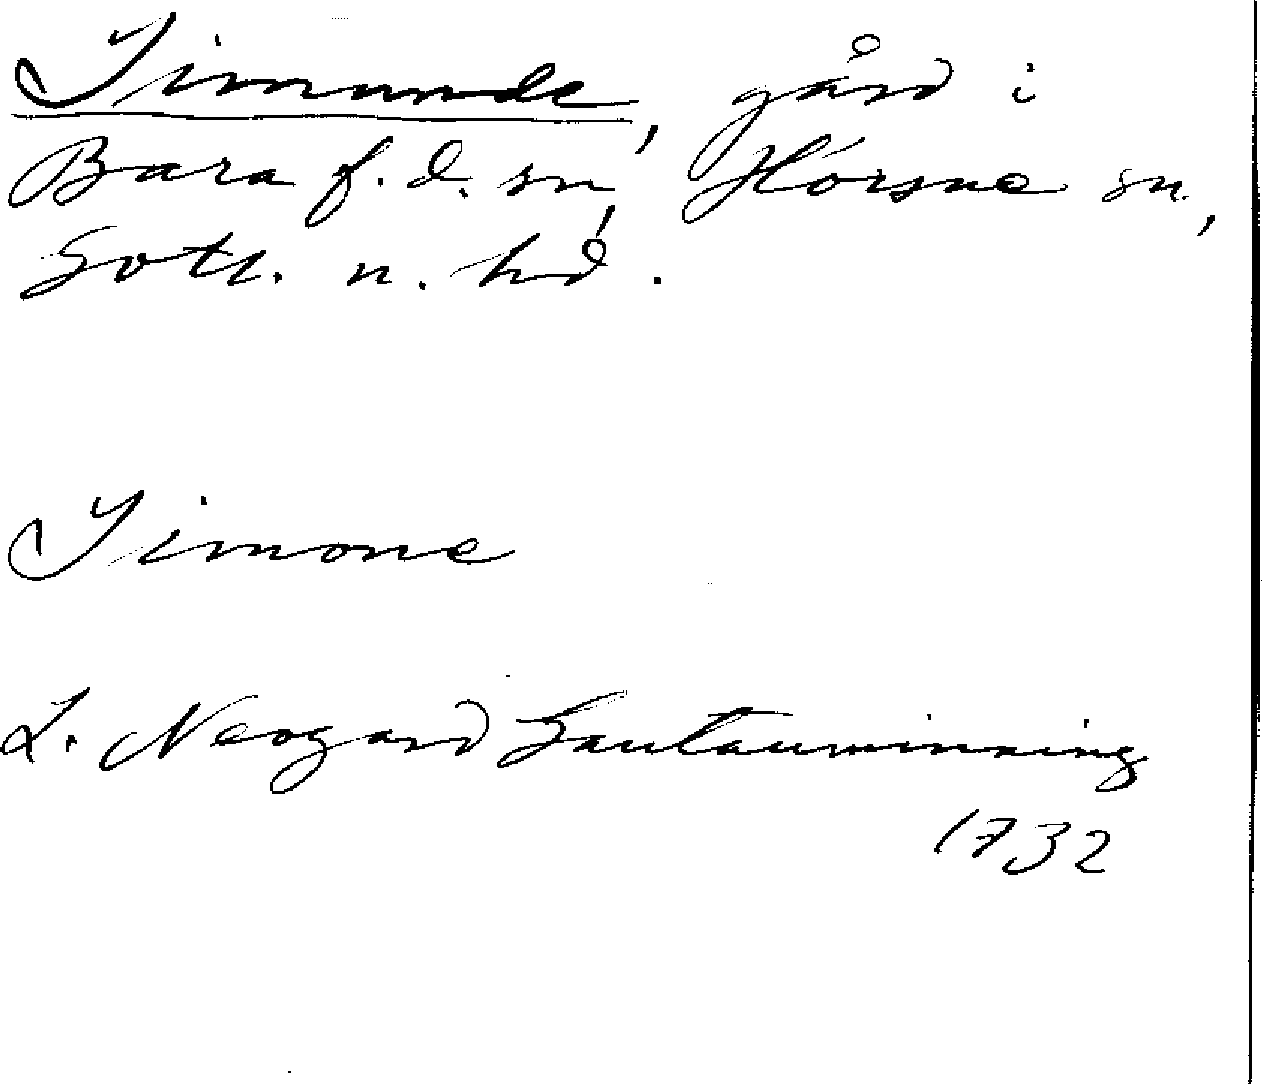 Simunde, gård i
Bara f. d. sn, Hörsne sn,
Gotl. n. hd.
Simone
L. Neogard Gautauminning
1732